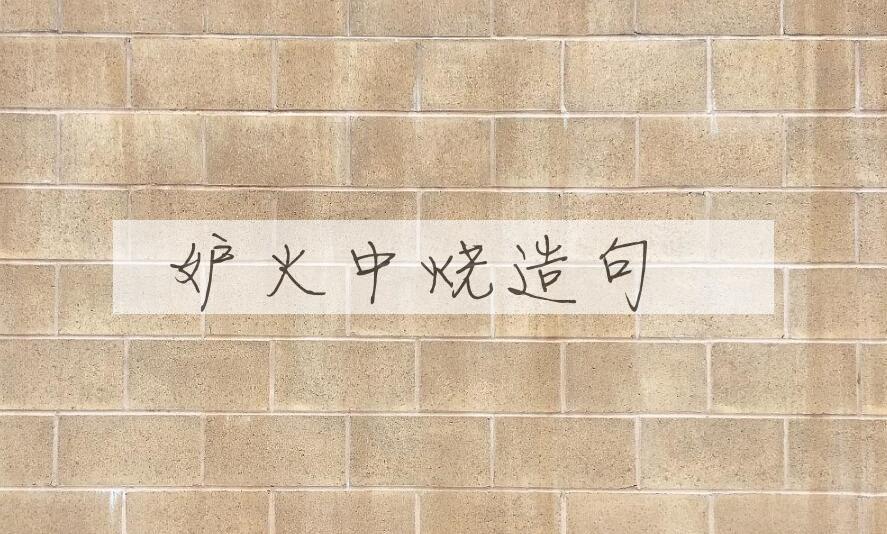 妒火中烧造句